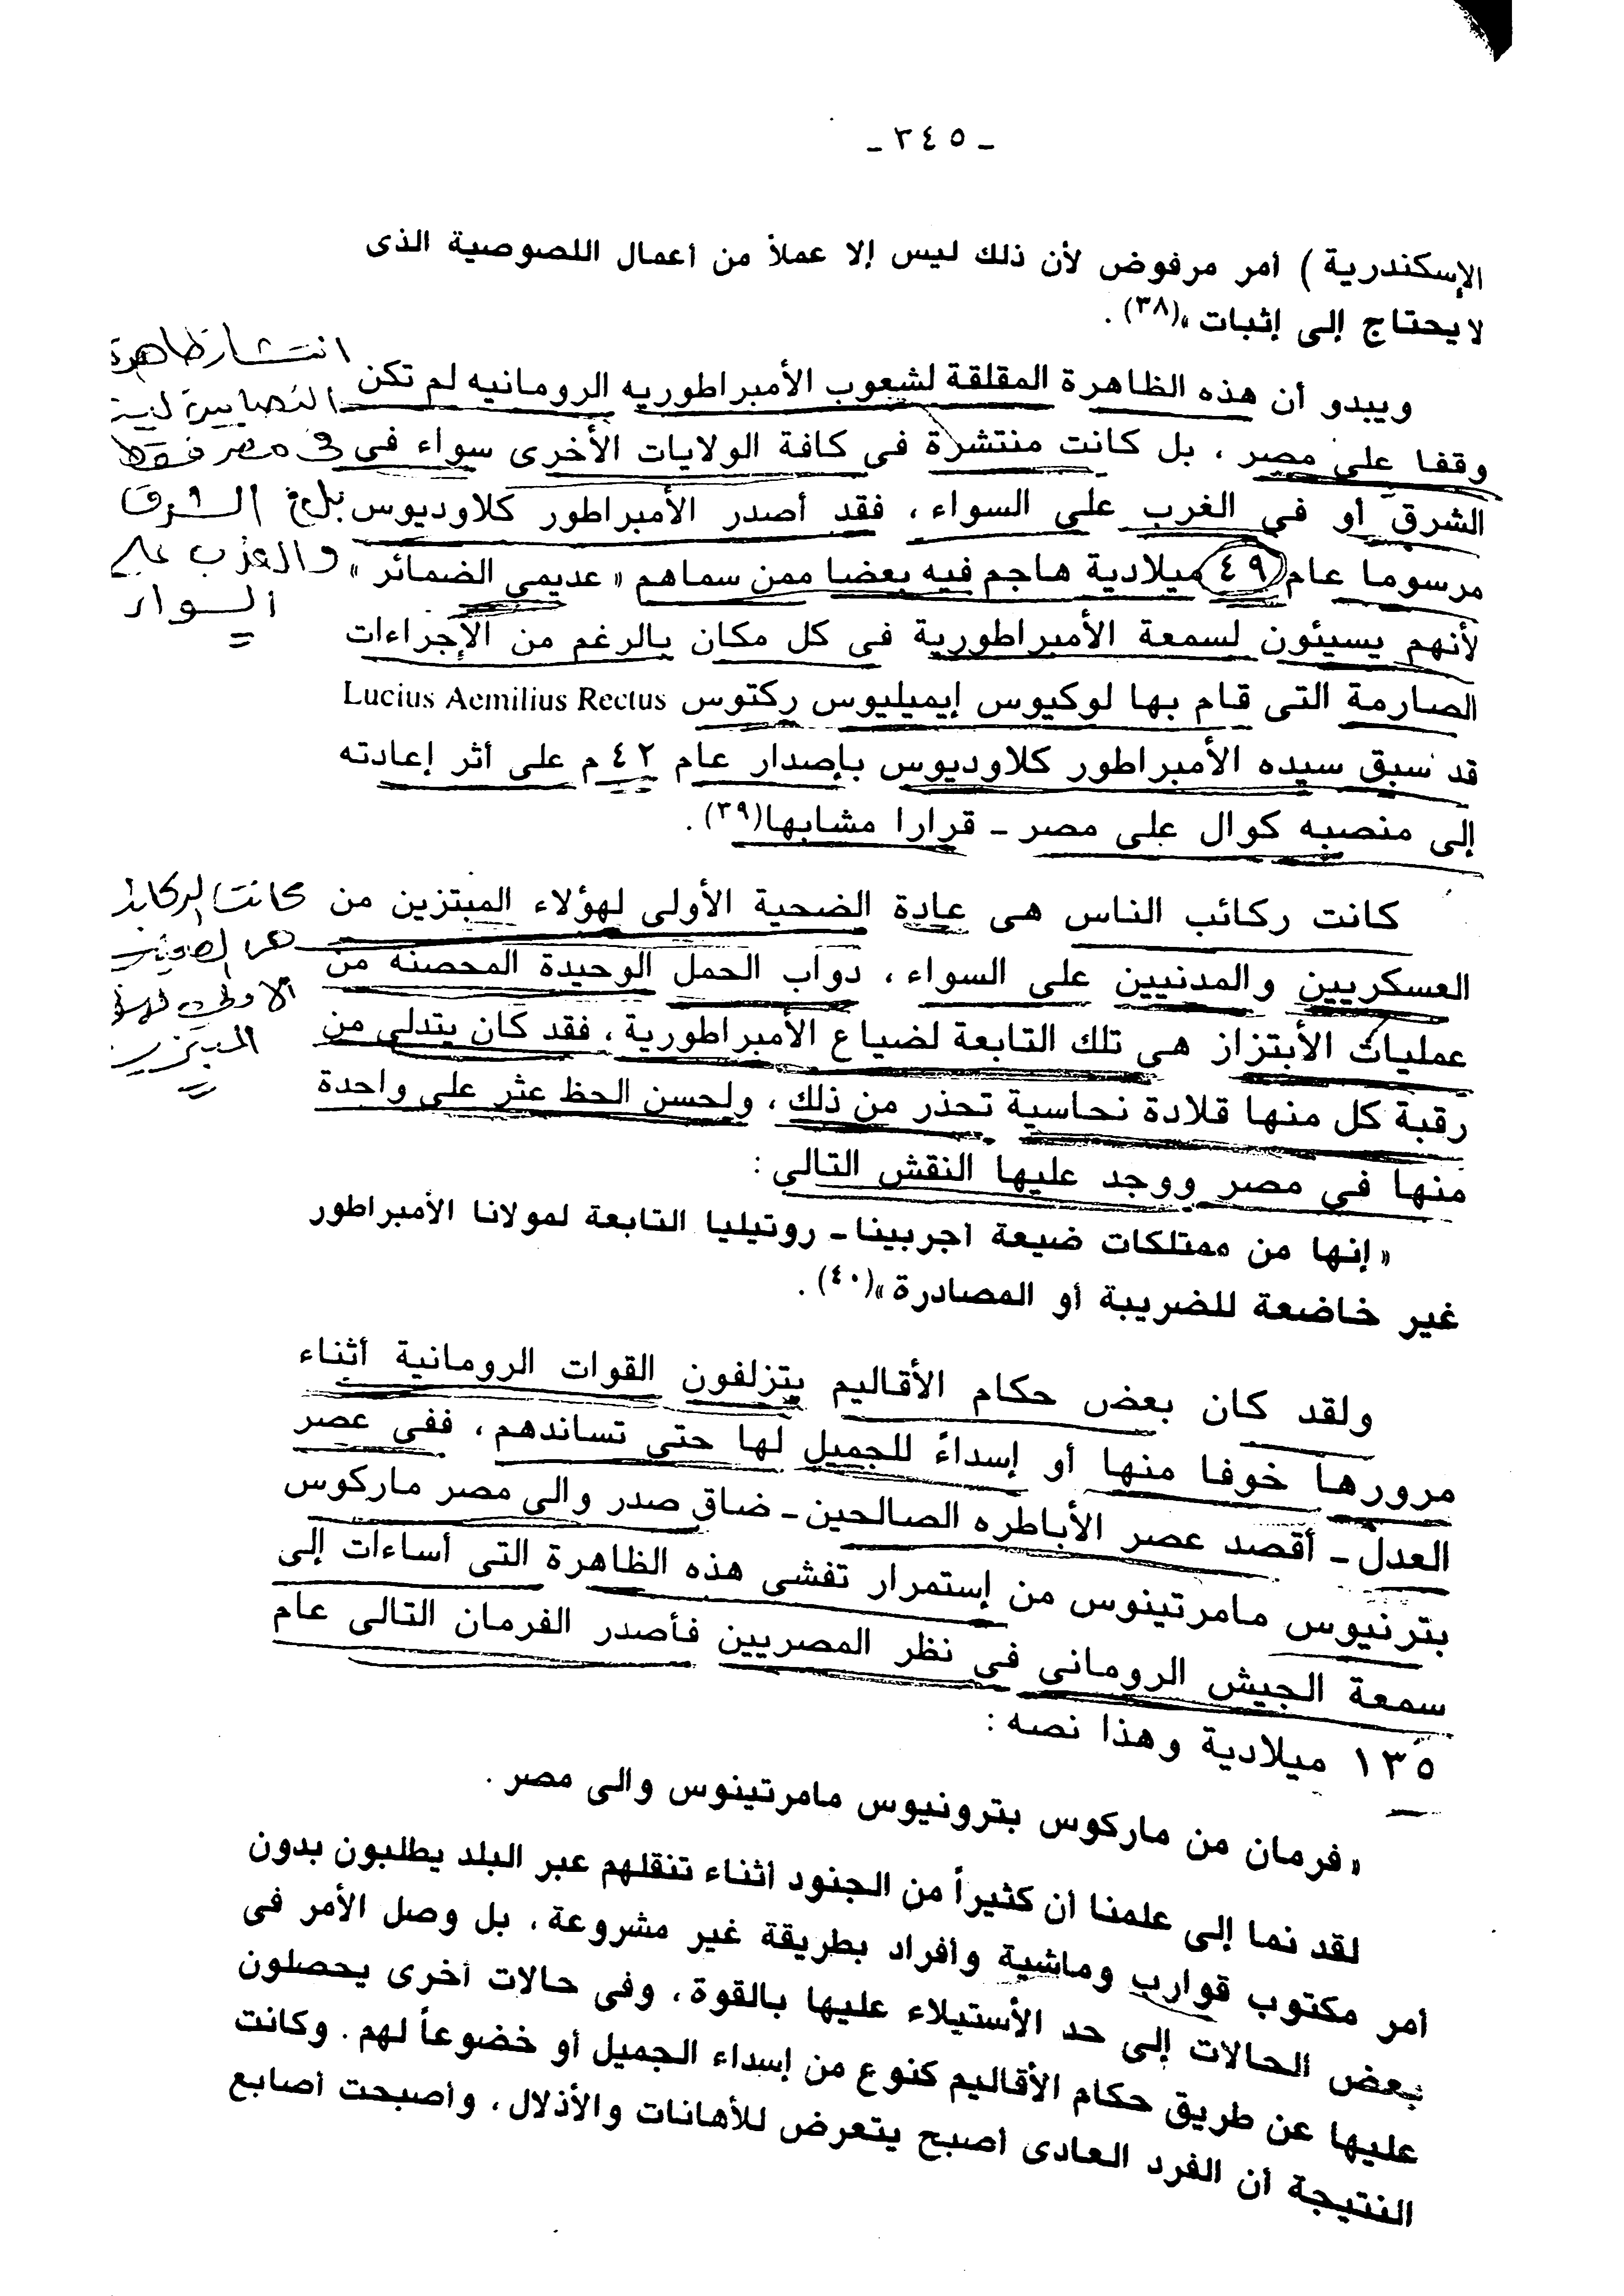 ـ ٣٤٥ ـ
الإسكندرية) أمر مرفوض لأن ذلك ليس إلا عملاً من أعمال اللصوصية الذى
لا يحتاج إلى إثبات »(٣٨).
ويبدو أن هذه الظاهرة المقلقة لشعوب الأمبراطوريه الرومانيه لم تكن
وقفا على مصر ، بل كانت منتشرة فى كافة الولايات الأخرى سواء فى
الشرق أو فى الغرب على السواء ، فقد أصدر الأمبراطور كلاوديوس
مرسوما عام ٤٩ ميلادية هاجم فيه بعضا ممن سماهم « عديمى الضمائر »
لأنهم يسيئون لسمعة الأمبراطورية فى كل مكان بالرغم من الإجراءات
الصارمة التى قام بها لوكيوس إيميليوس ركتوس Lucius Aemilius Rectus
قد سبق سيده الأمبراطور كلاوديوس بإصدار عام ٤٢ م على أثر إعادته
إلى منصبه كوال على مصر ـ قرارا مشابها(٣٩).
انتشار ظاهرة
فى مصر فقط
بل فى الشرق
والغرب على
السواء
كانت ركائب الناس هى عادة الضحية الأولى لهؤلاء المبتزين من
العسكريين والمدنيين على السواء ، دواب الحمل الوحيدة المحصنه من
عمليات الأبتزاز هى تلك التابعة لضياع الأمبراطورية ، فقد كان يتدلى من
رقبة كل منها قلادة نحاسية تحذر من ذلك ، ولحسن الحظ عثر على واحدة
منها فى مصر ووجد عليها النقش التالى :
كانت الركائب
هى الضحية
الأولى لهؤلاء
المبتزين
« إنها من ممتلكات ضيعة أجربينا ـ روتيليا التابعة لمولانا الأمبراطور
غير خاضعة للضريبة أو المصادرة »(٤٠).
ولقد كان بعض حكام الأقاليم يتزلفون القوات الرومانية أثناء
مرورها خوفا منها أو إسداءً للجميل لها حتى تساندهم ، ففى عصر
العدل ـ أقصد عصر الأباطره الصالحين ـ ضاق صدر والى مصر ماركوس
بترنيوس مامرتينوس من إستمرار تفشى هذه الظاهرة التى أساءات إلى
سمعة الجيش الرومانى فى نظر المصريين فأصدر الفرمان التالى عام
١٣٥ ميلادية وهذا نصه :
« فرمان من ماركوس بترونيوس مامرتينوس والى مصر .
لقد نما إلى علمنا أن كثيراً من الجنود أثناء تنقلهم عبر البلد يطلبون بدون
أمر مكتوب قوارب وماشية وأفراد بطريقة غير مشروعة ، بل وصل الأمر فى
بعض الحالات إلى حد الأستيلاء عليها بالقوة ، وفى حالات أخرى يحصلون
عليها عن طريق حكام الأقاليم كنوع من إسداء الجميل أو خضوعاً لهم . وكانت
النتيجة أن الفرد العادى أصبح يتعرض للأهانات والأذلال ، وأصبحت أصابع